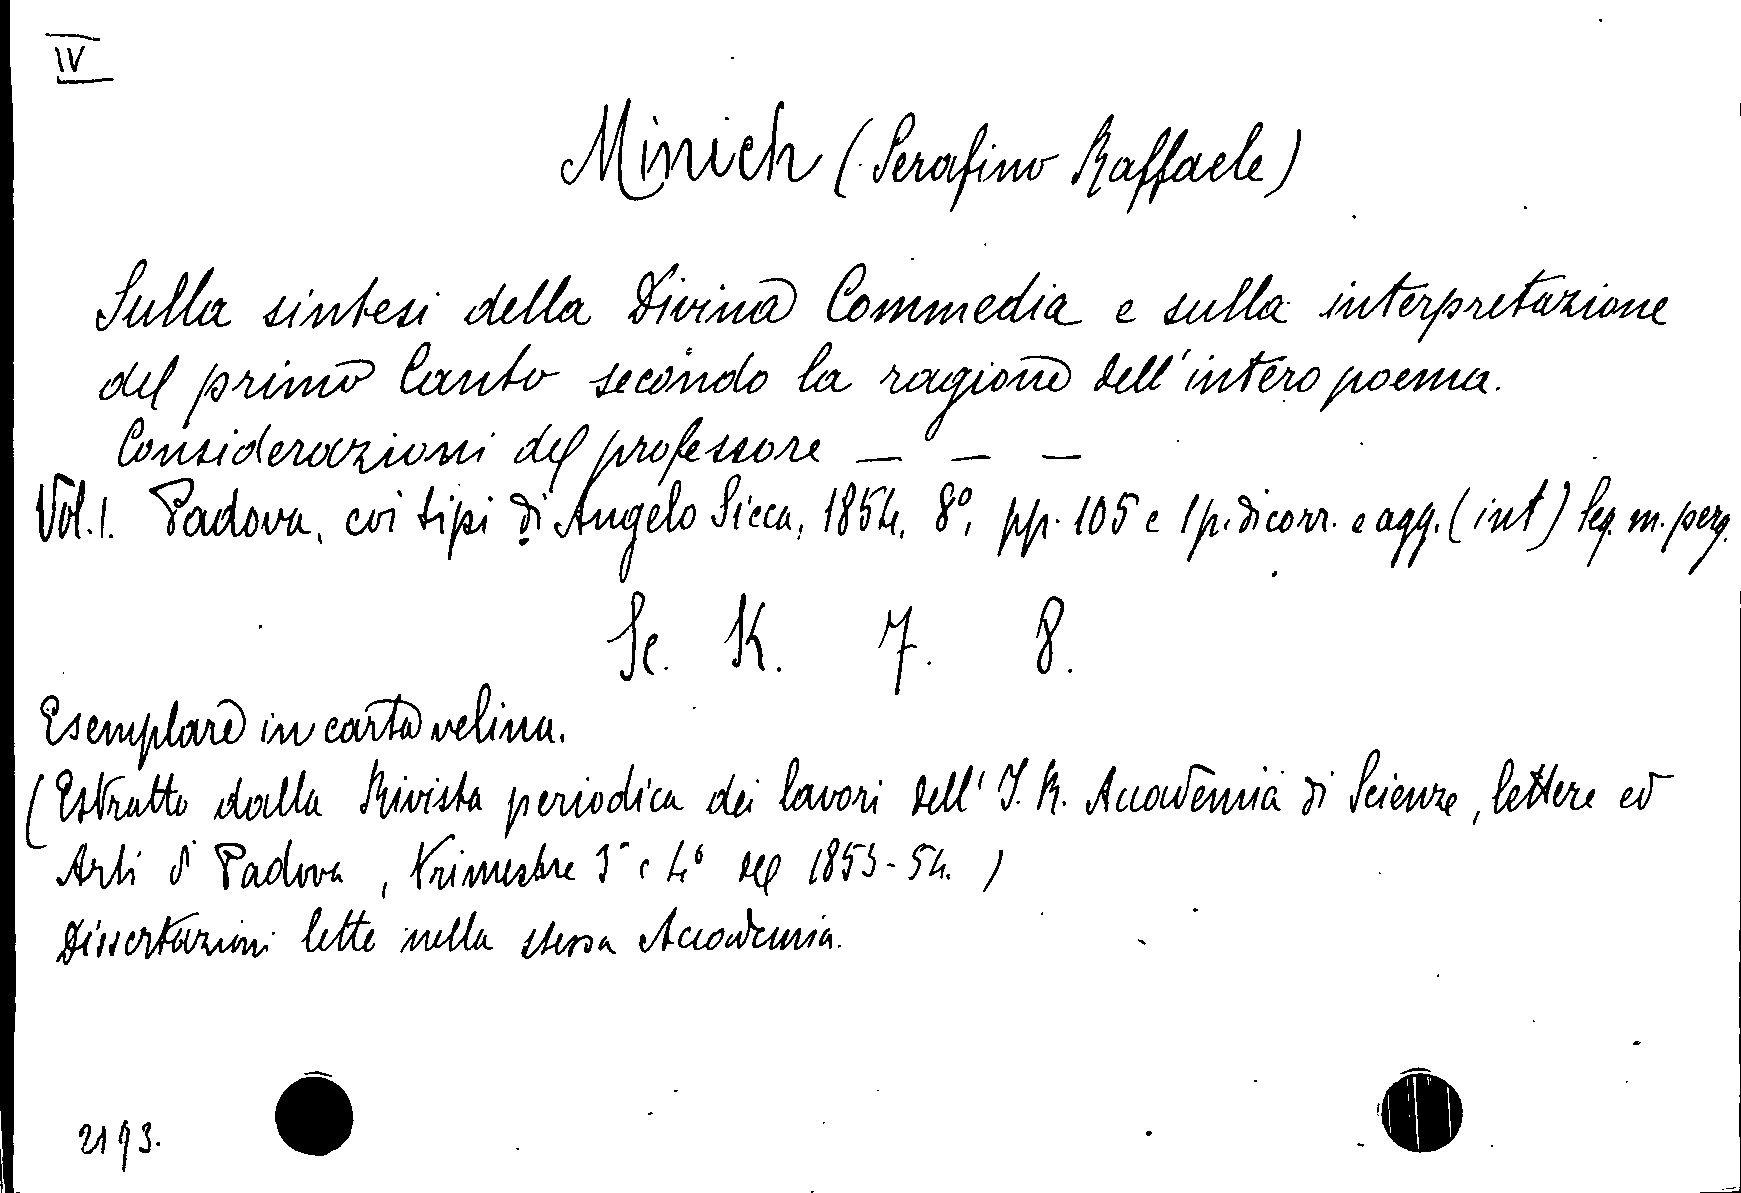 IV
Minich (Serafino Raffaele)
Sulla sintesi della Divina Commedia e sulla interpretazione
del primo Canto secondo la ragione dell'intero poema.
Considerazioni del professore — — —
Vol. 1. Padova, coi tipi di Angelo Sicca, 1854, 8º, pp. 105 e 1 p. di corr. e agg. (int) leg. m. perg.
Sc. K. 7. 8.
Esemplare in carta velina.
(Estratto dalla Rivista periodica dei lavori dell' I. R. Accademia di Scienze, lettere ed
Arti di Padova, Trimestre 3º e 4º del 1853-54.)
Dissertazioni lette nella stessa Accademia.
2193.